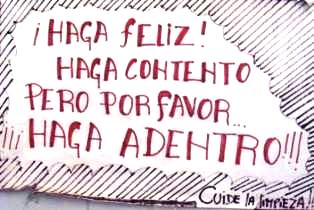 ¡HAGA FELIZ!
HAGA CONTENTO
PERO POR FAVOR...
¡¡¡HAGA ADENTRO!!!
CUIDE la limPIEZA!!